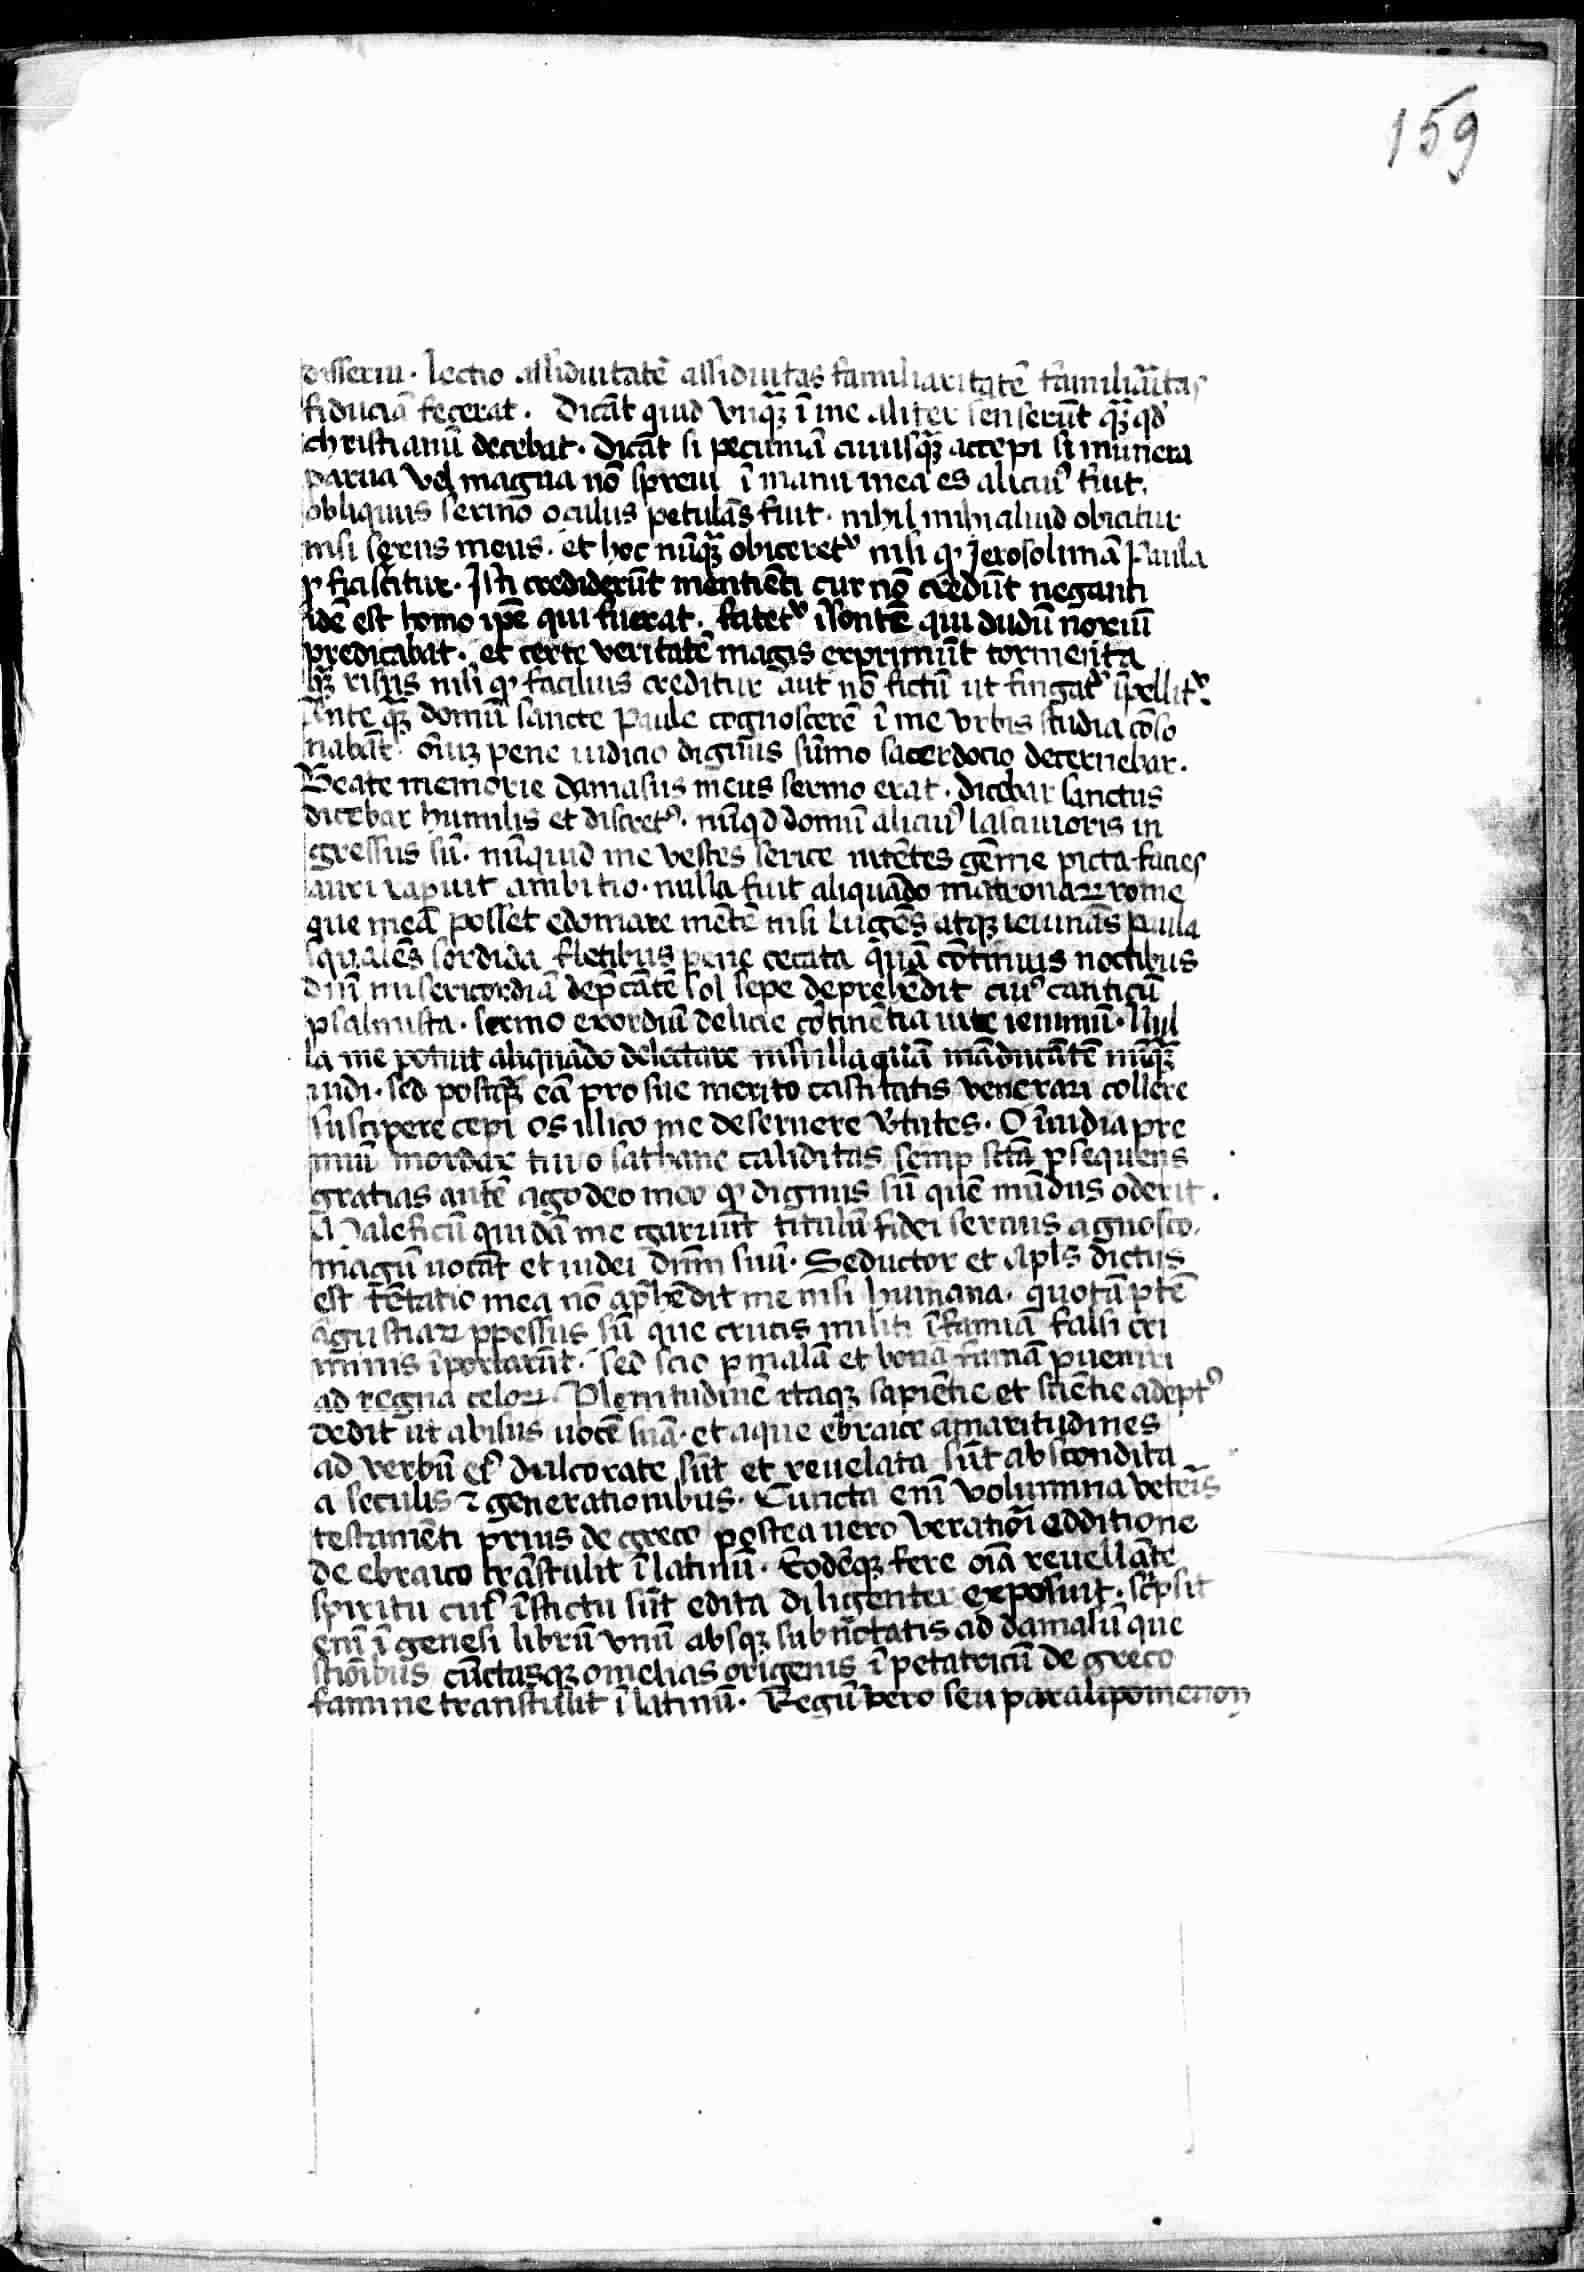 159
disserui. lectio assiduitatē assiduitas familiaritatē familiaritas
fiduciā fecerat. Dicāt quid vnq̄ꝫ ī me aliter senserūt q̄ꝫ qd̓
christianū decebat. Dicāt si pecuniā cuiusq̄ꝫ accepi si munera
parua vel magna nō spreui ī manu mea es alicuiꝰ fuit.
obliquus sermo oculus petulās fuit. nihil mihi aliud obicitur
nisi sexus meus. et hoc nūq̄ꝫ obiceretᷣ nisi ꝙ Jerosolimā Paula
ꝓficiscitur. crediderūt mentiēti cur nō credūt neganti
idē est homo ip̄e qui fuerat. fatetᷣ īsontē qui dudū noxiū
predicabat. et certe veritatē magis exprimūt tormenta
q̄ꝫ risus nisi ꝙ facilius creditur aut nō fictū ut fingatᷣ īpellitᷣ.
Ante q̄ꝫ domū sancte Paule cognoscerē ī me vrbis studia cōso
nabāt. oīuꝫ pene iudicio dignus sūmo sacerdocio decernebar.
Beate memorie damasus meus sermo erat. dicebar sanctus
dicebar humilis et discretꝰ. nūqd domū alicuiꝰ lasciuioris in
gressus sū. nūquid me vestes serice nitētes gēme picta facies
auri rapuit ambitio. nulla fuit aliquādo matronaꝝ rome
que meā posset edomare mētē nisi lugēs atqꝫ ieiunās Paula
squalēs sordida fletibus pene cecata quā cōtinuis noctibus
dn̄i misericordiā dep̄cātē sol sepe deprehēdit cuiꝰ canticū
psalmista. sermo exordiū delicie cōtinētia uite ieiuniū. Nul
la me potuit aliquādo delectare nisi illa quā māducātē nūq̄ꝫ
uidi. sed postq̄ꝫ eā pro sue merito castitatis venerari collere
suscipere cepi os illico me deseruere v̓tutes. O īuidia pre
miū mordax tui o sathane caliditas semꝑ sctā ꝑsequens
gratias autē ago deo meo ꝙ dignus sū quē mūdus oderit.
Maleficū quidā me garriūt titulū fidei seruus agnosco.
magū uocāt et iudei dn̄m suū. Seductor et apl̄s dictus
est tētatio mea nō ap̄hēdit me nisi humana. quotā ꝑtē
āgustiaꝝ ꝑpessus sū que crucis militi īfamiā falsi cri
minis īportarūt. sed scio ꝑ malā et bonā famā ꝑueniri
ad regna celoꝝ. Plenitudinē itaqꝫ sapiētie et sciētie adeptꝰ
dedit ut abisus uocē suā. et aque ebraice amaritudines
ad verbū eiꝰ dulcorate sūt et reuelata sūt abscondita
a seculis ⁊ generationibus. Cuncta enī volumina veteris
testamēti prius de greco postea uero veratiori edditione
de ebraico trāstulit ī latinū. Eodēqꝫ fere oīa reuellāte
spiritu cuiꝰ īstictu sūt edita diligenter exposuit. scͥpsit
enī ī genesi librū vnū absqꝫ subn̄ctatis ad damasū que
stiōibus cūctasqꝫ omelias origenis ī petatricū de greco
famine transtulit ī latinū. Regū vero seu paralipomenon